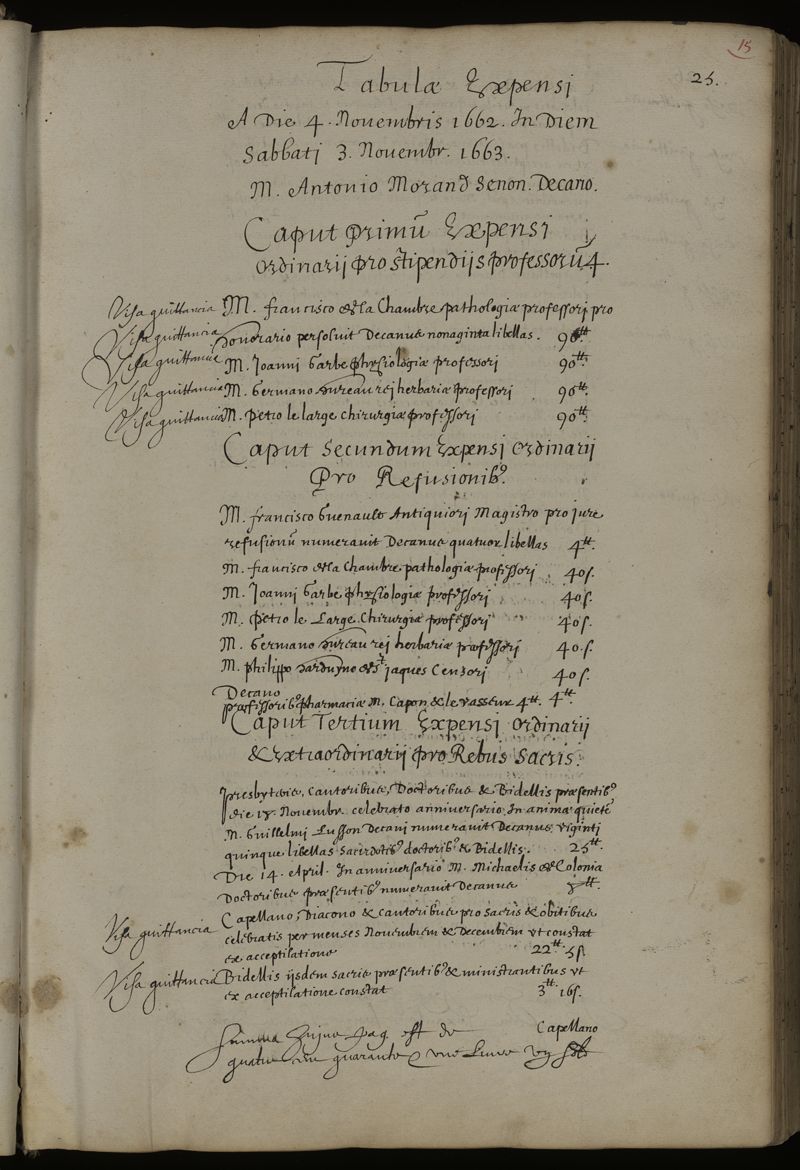 15
25.
Tabulæ Expensi
A Die 4. Nouembris 1662. In Diem
Sabbati 3. Nouembr. 1663.
M. Antonio Morand Senon. Decano.
Caput primū Expensi
ordinarij pro stipendijs professorū 4.
Visa quittancia M. francisco de la Chambre pathologiæ professori pro
Visa quittancia honorario persoluit Decanus nonaginta libellas. 90tt
Visa quittancia M. Joanni Garbe physiologiæ professori 90tt
Visa quittancia M. Germano hureau rej herbariæ professori 90tt
Visa quittancia M. petro le large chirurgiæ professori 90tt
Caput secundum Expensi ordinarij
Pro Refusionib9.
M. francisco Guenault Antiquiorj Magistro pro jure
refusionū numerauit Decanus quatuor libellas 4tt.
M. francisco de la Chambre pathologiæ professorj 40s.
M. Joannj Garbe physiologiæ professorj 40s.
M. petro le Large chirurgiæ professorj 40s.
M. Germano hureau rej herbariæ professorj 40.s.
M. philippo harduyn de St jaques Censorj 40s.
Decano 4tt.
professorib9 pharmaciæ M. Capon & le vasseur 4tt.
Caput Tertium Expensj ordinarij
& Extraordinarij pro Rebus Sacris.
presbyteris, cantoribus, Doctoribus & Bidellis præsentib9
die Nouembr. celebrato anniuersario In animæ quietē
M. Guillelmj Lusson Decanj numerauit Decanus viginti
quinque libellas sacerdotib9 doctorib9 & Bidellis. 25tt.
Die 14. April. In anniuersario M. Michaelis de Colonia
Doctoribus præsentib9 numerauit Decanus tt.
Visa quittancia Capellano, Diacono & cantoribus pro sacris & obitibus
celebratis per menses Nouembrem & Decembrem vt constat
ex acceptilatione 22tt. 5s
Visa quittancia Bidellis ijsdem sacris præsentib9 & ministrantibus vt
ex acceptilatione constat 3tt. 16s.
Capellano
Summa hujus pag. est de
quatre cens quarante & une Liures